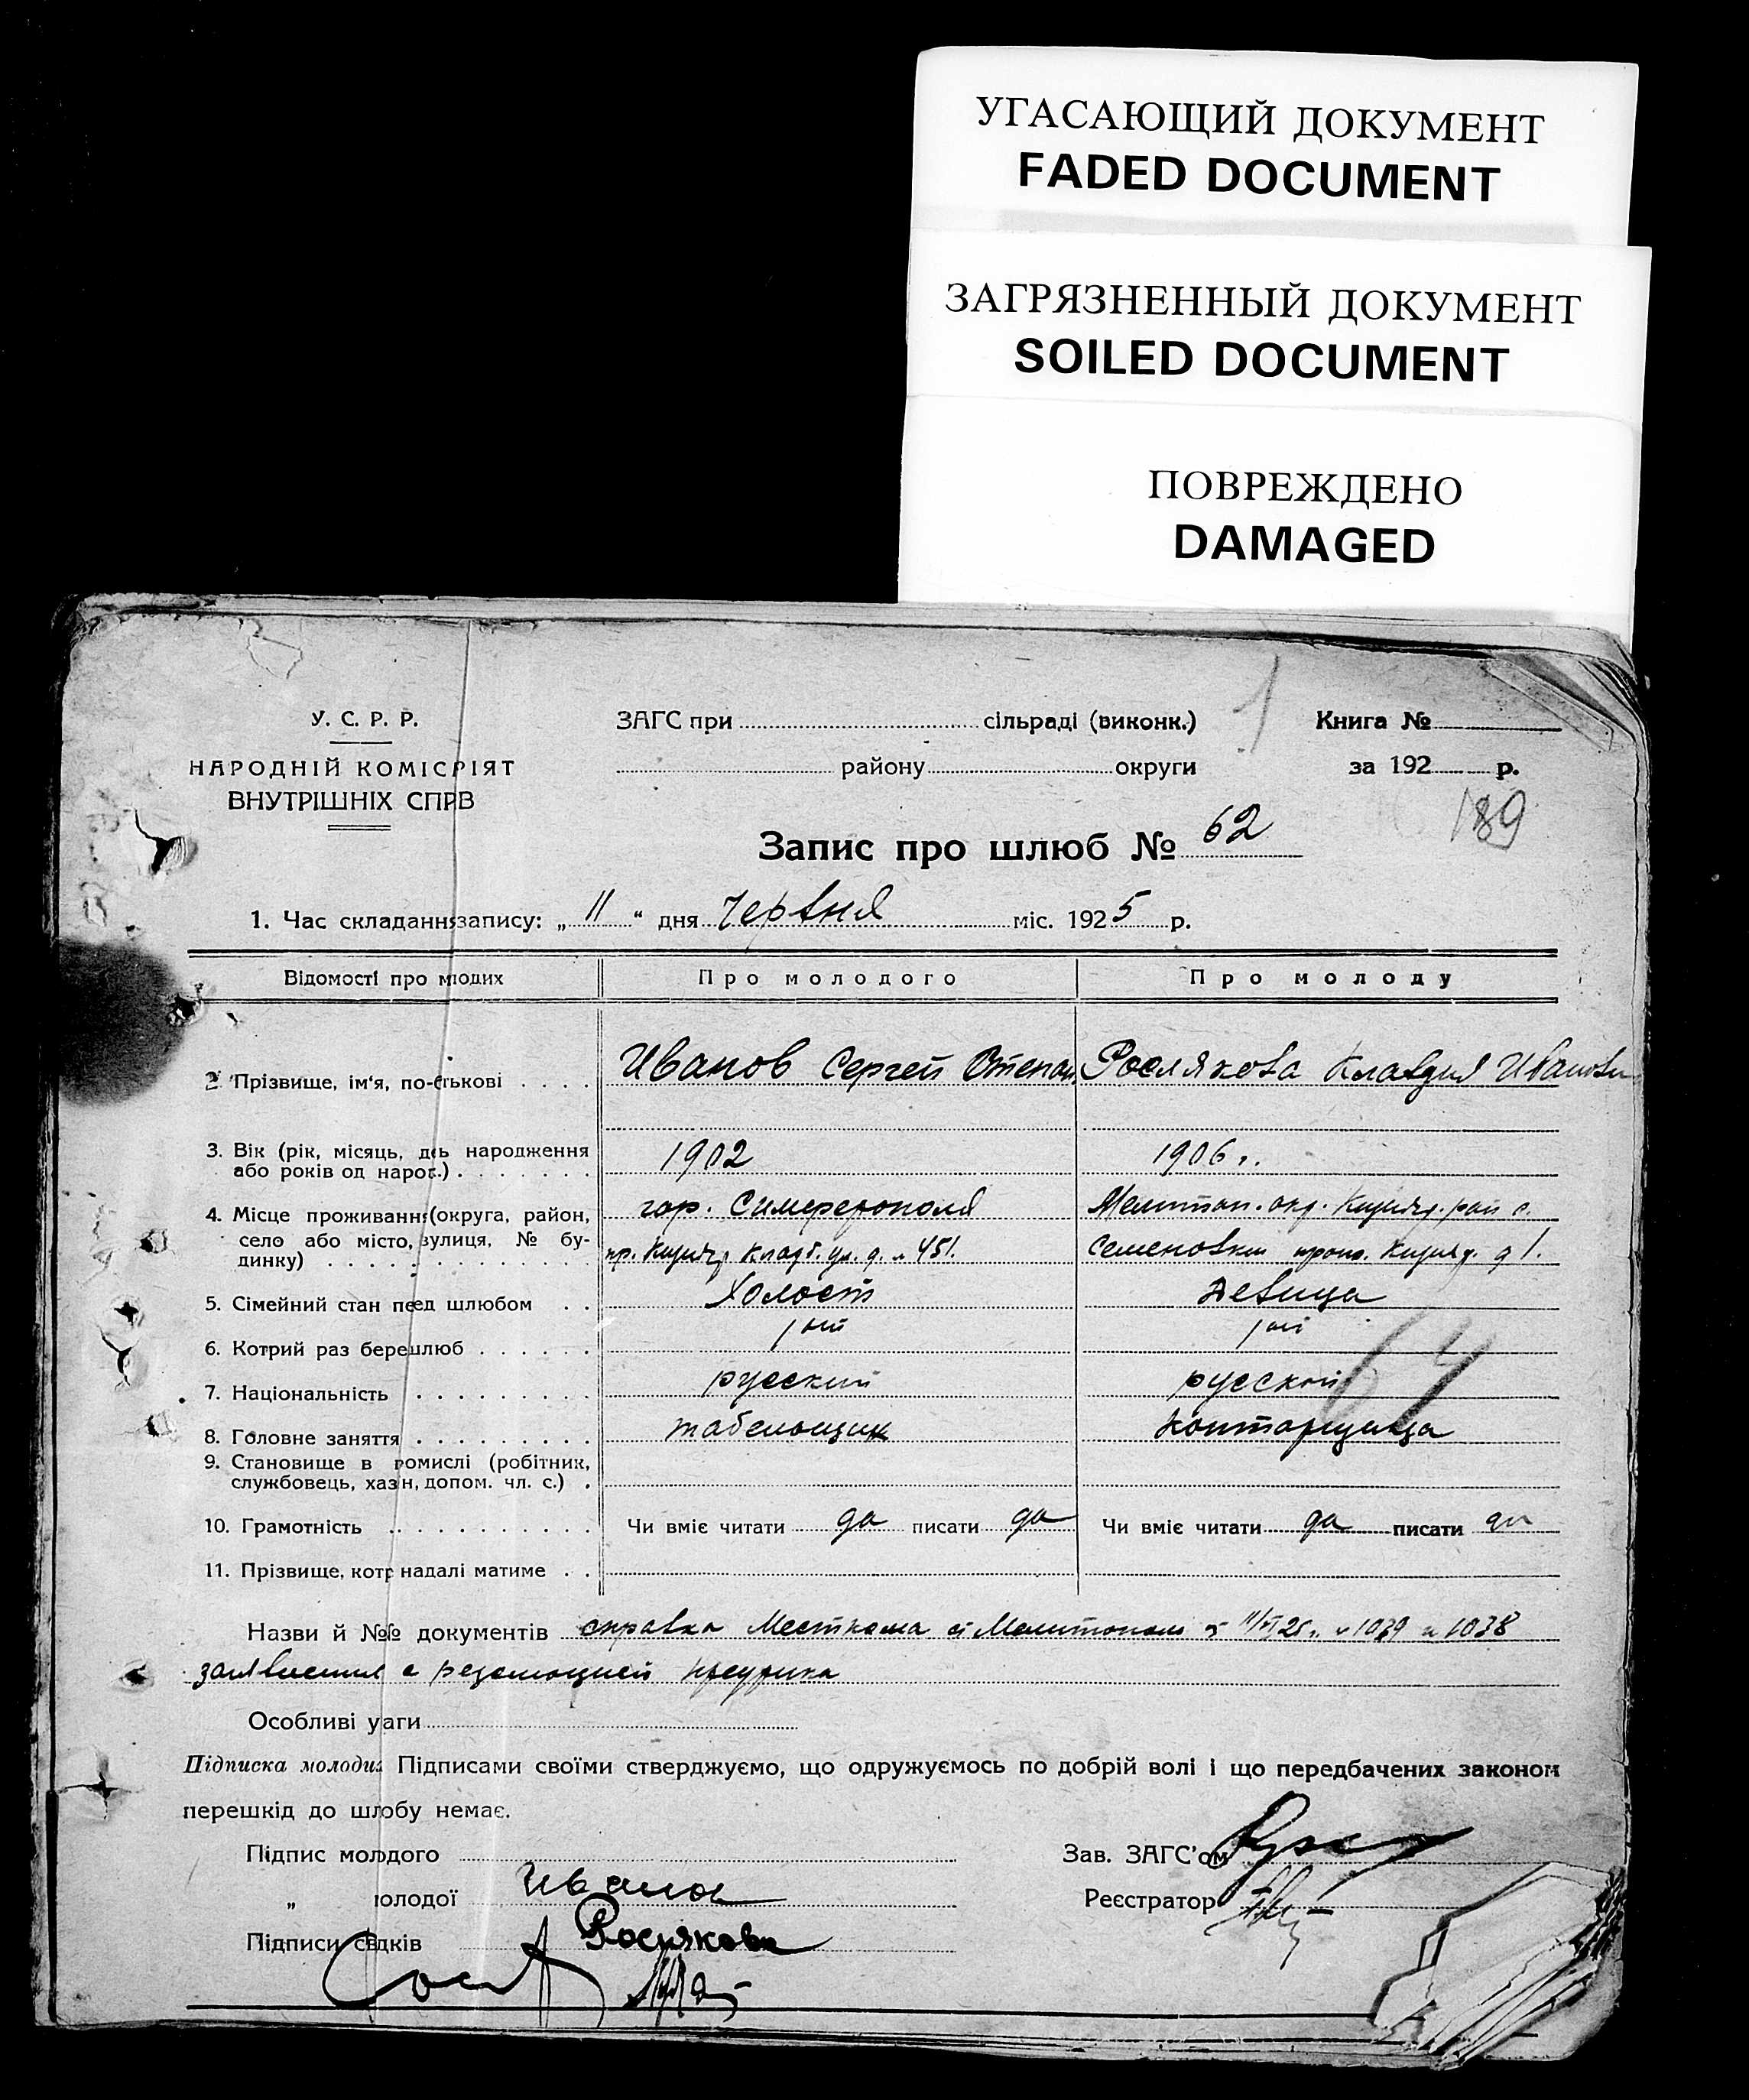 УГАСАЮЩИЙ ДОКУМЕНТ
FADED DOCUMENT
ЗАГРЯЗНЕННЫЙ ДОКУМЕНТ
SOILED DOCUMENT
ПОВРЕЖДЕНО
DAMAGED
У. С. Р. Р.
НАРОДНІЙ КОМІСРІЯТ
ВНУТРІШНІХ СПРВ
ЗАГС при сільраді (виконк.)
району округи
1
Книга №
за 192 р.
189
Запис про шлюб № 62
1. Час складання запису: „ 11 “ дня Червня міс. 1925 р.
Відомості про молодих Про молодого Про молоду
2. Прізвище, ім'я, по-батькові Иванов Сергей Степан Рослякова Клавдия Ивановн
3. Вік (рік, місяць, день народження
або років од народ.) 1902 1906 г.
4. Місце проживання (округа, район, гор. Симферополя Мелитоп. окр. Кизияр. рай с.
село або місто, вулиця, № бу- пр. Кизияр Кладб. ул. д. № 451. Семеновки прож. Кизияр. д 1.
динку)
5. Сімейний стан перед шлюбом Холост Девица
6. Котрий раз бере шлюб 1ый 1ый
64
7. Національність русский русской
8. Головне заняття табельщик конторщица
9. Становище в промислі (робітник,
службовець, хазяїн, допом. чл. с.)
10. Грамотність Чи вміє читати да писати да Чи вміє читати да писати да
11. Прізвище, котре надалі матиме
Назви й №№ документів справка Месткома ст Мелитополь от 11/VI 25 г. № 1039 и 1038
заявления с резолюцией
Особливі уваги
Підписка молодих Підписами своїми стверджуємо, що одружуємось по добрій волі і що передбачених законом
перешкід до шлюбу немає.
Підпис молодого
Зав. ЗАГС'ом
„ молодої Иванов
Реєстратор
Підписи свідків Рослякова